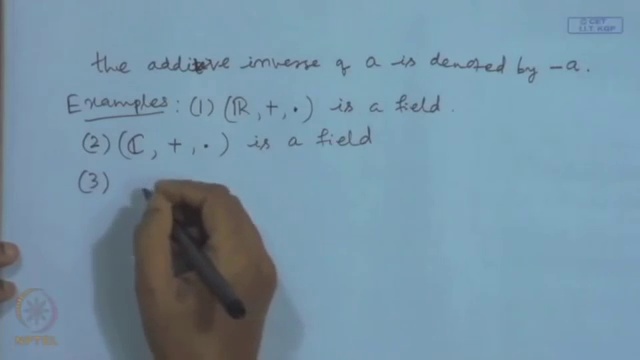 © CET
I.I.T. KGP
the additive inverse of a is denoted by -a.
Examples: (1) (ℝ, +, ·) is a field.
(2) (ℂ, +, ·) is a field
(3)
NPTEL